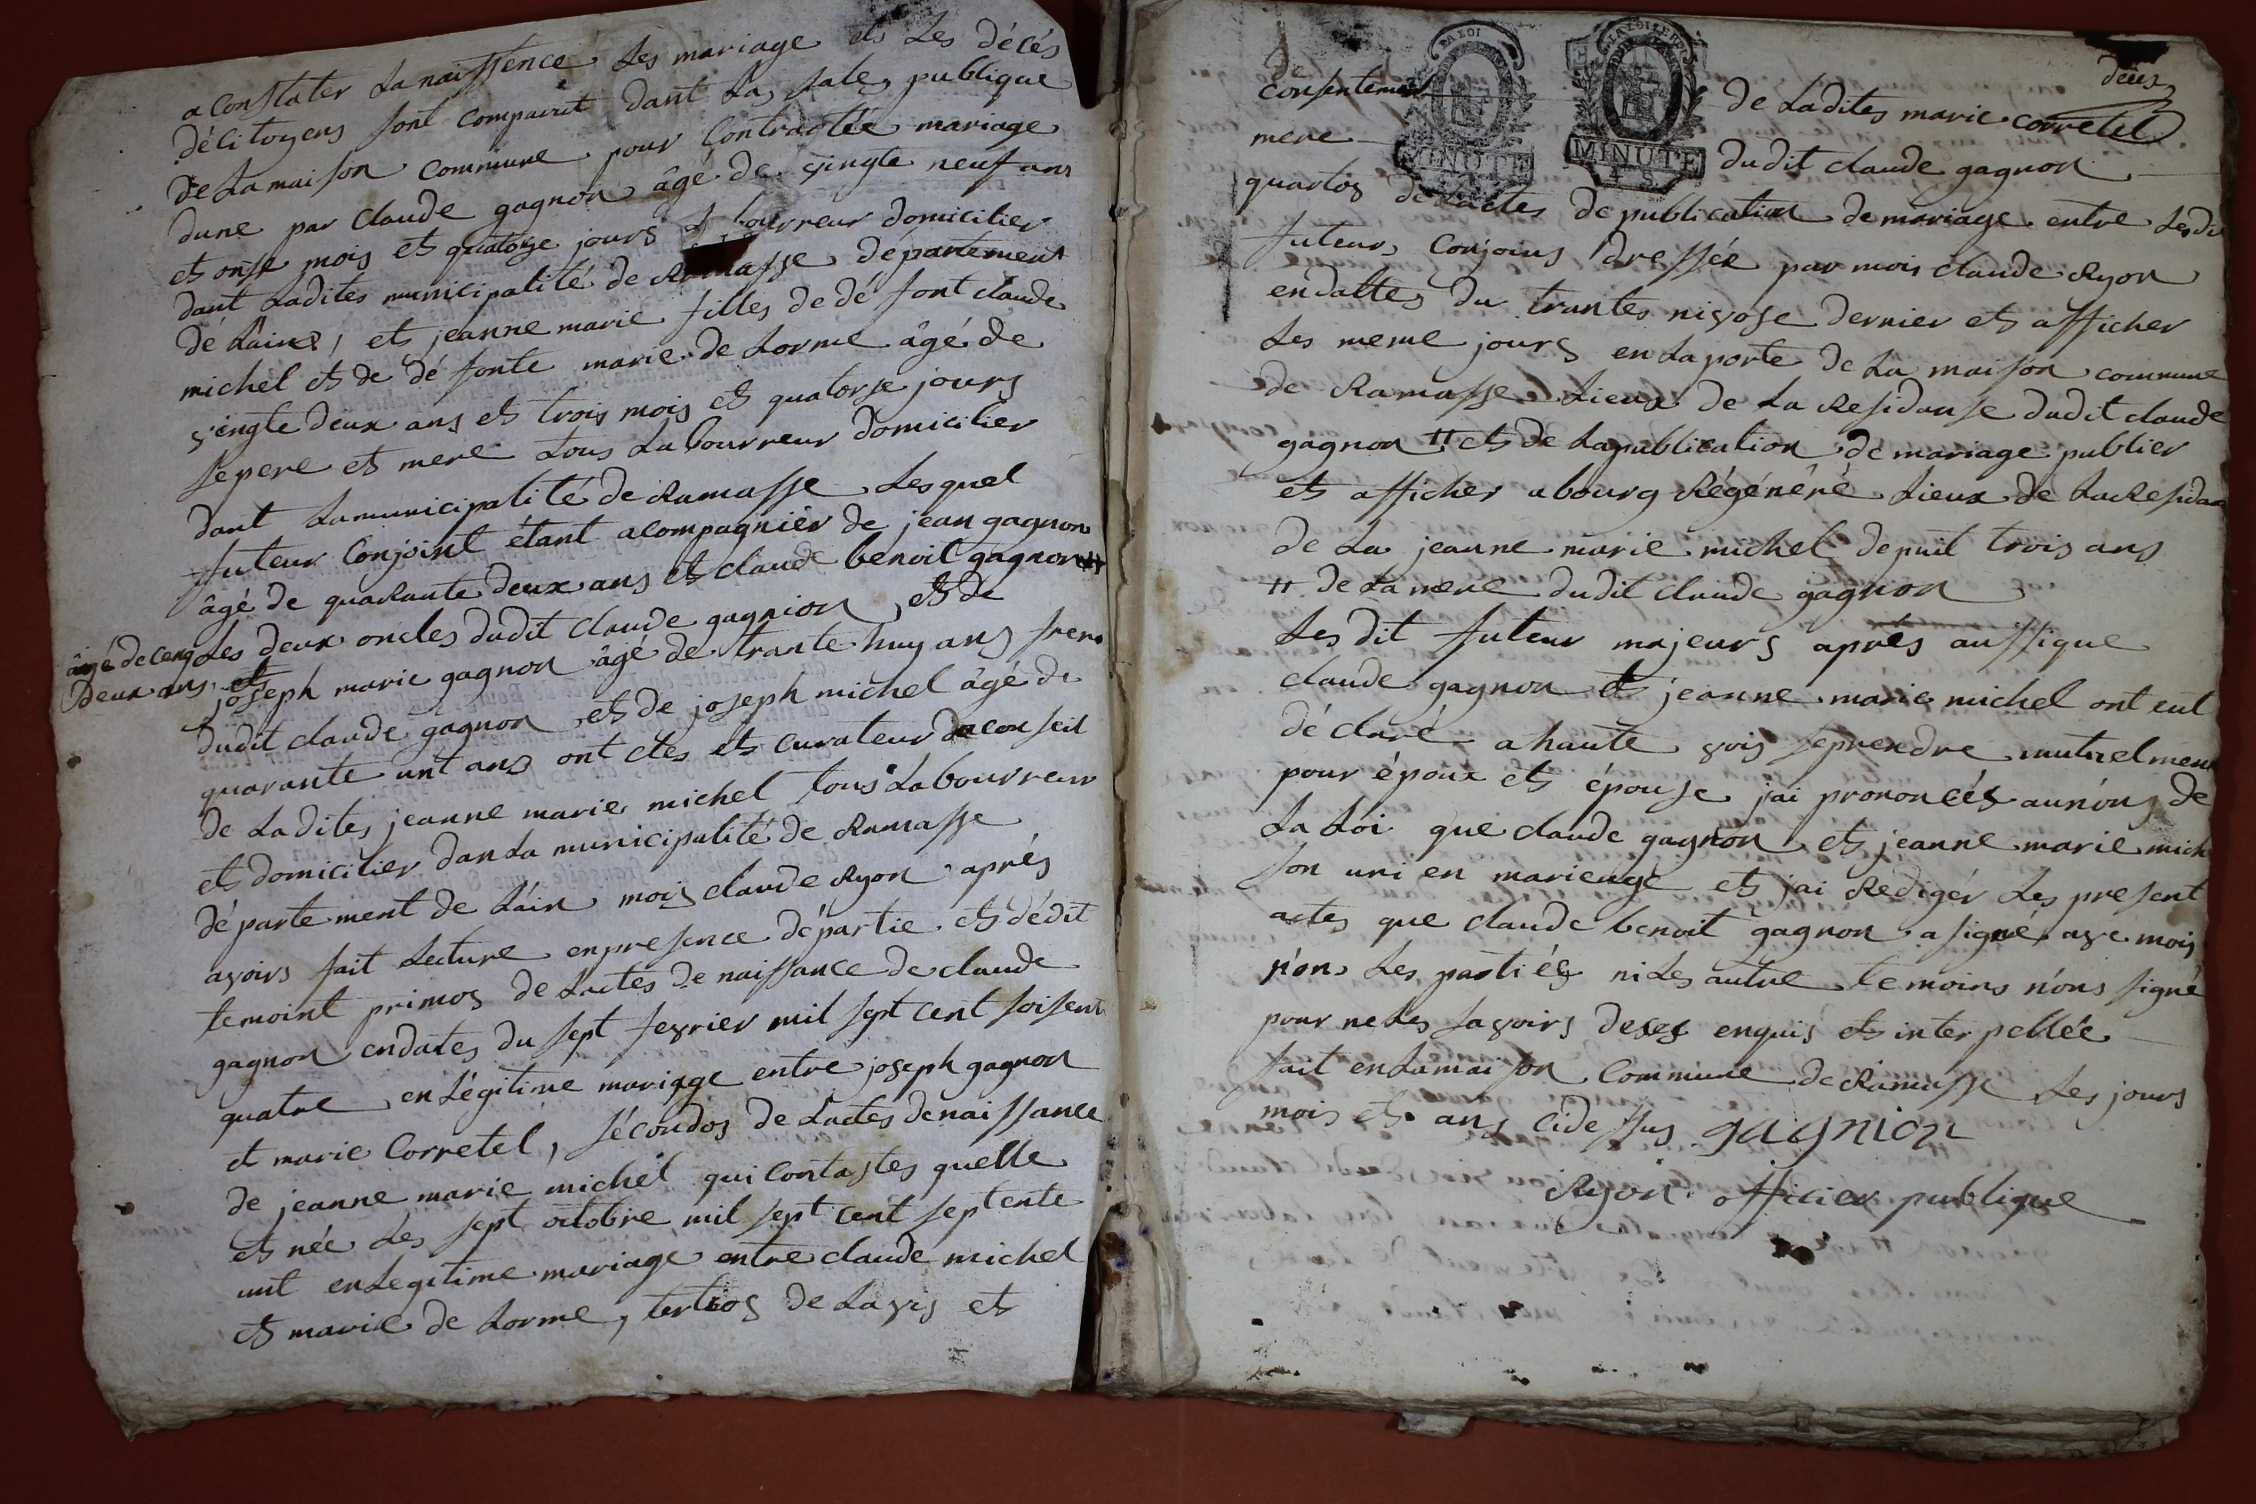 a constater La naissence Les mariage et Les décés
décitoyens sont comparut dant La sale publique
de La maison commune pour Contractée mariage
dune par Claude gagnon âgé de vingte neuf ans
et onse mois et quatorze jours bourreur domicilier
dant Ladites municipalité de Ramasse département
dé Lains, et jeanne marie filles de dé font claude
michel et de dé fonte marie de Lorme âgé de
vingte deux ans et trois mois et quatorse jours
Sepere et mere tous Labourreur domicilier
dant Lamunicipalité de Ramasse Lesquel
futeur Conjoint étant acompagniér de jean gagnon
âgé de quarante deux ans et claude benoit gagnon #
âgé de cenq Les deux oncles dudit claude gagnion, et de
deux ans et joseph marie gagnon âgé de trante huy ans frere
dudit claude gagnon et de joseph michel âgé de
quarante unt ans ont cles et curateur de conseil
de Ladites jeanne marie michel tous Labourreur
et domicilier dan La municipalité de Ramasse
département de Láin mois claude Ryon aprés
avoirs fait Lecture enpresence départie et dédit
temoint primos de Lactes de naissance de claude
gagnon endates du sept fevrier mil sept cent soisent
quatre en Légitime mariage entre joseph gagnon
et marie Corretel, sécondos de Lactes denaissance
de jeanne marie michel qui Contastes quelle
et née Les sept octobre mil sept cent septente
unt en Legitime mariage entre claude michel
et marie de Lorme, tertios de Lavis et
deux
de
consentement de Ladites marie corretel
LA LOI
MINUTE
MINUTE
4 S
mere dudit claude gagnon
quartos de Lactes de publication de mariage entre Lesdit
futeur Conjoins dressée par mois claude Ryon
endattes du trantes nivose dernier et afficher
Les meme jours en La porte de La maison commune
de Ramasse Lieux de La Residanse dudit claude
gagnon # et de Lapublication de mariage publier
et afficher a bourg Régénéré Lieux de LaResidan
de La jeanne marie michel depuit trois ans
# de La mere dudit claude gagnon
Les dit futeur majeurs aprés aussique
claude gagnon et jeanne marie michel ont eut
déclaré a haute voix seprendre mutuelment
pour époux et épouse jai prononcés aunón de
La Loi que claude gagnon et jeanne marie mich
son uni en marieage et jai Redigér Les present
actes que claude benoit gagnon a signé ave mois
nón Les partiés ni Les autre temoins nóns signé
pour neles savoirs deses enquis et interpellée
fait en Lamaison Commune de Ramasse Les jours
mois et ans cidessus gagnion
Ryon officier publique